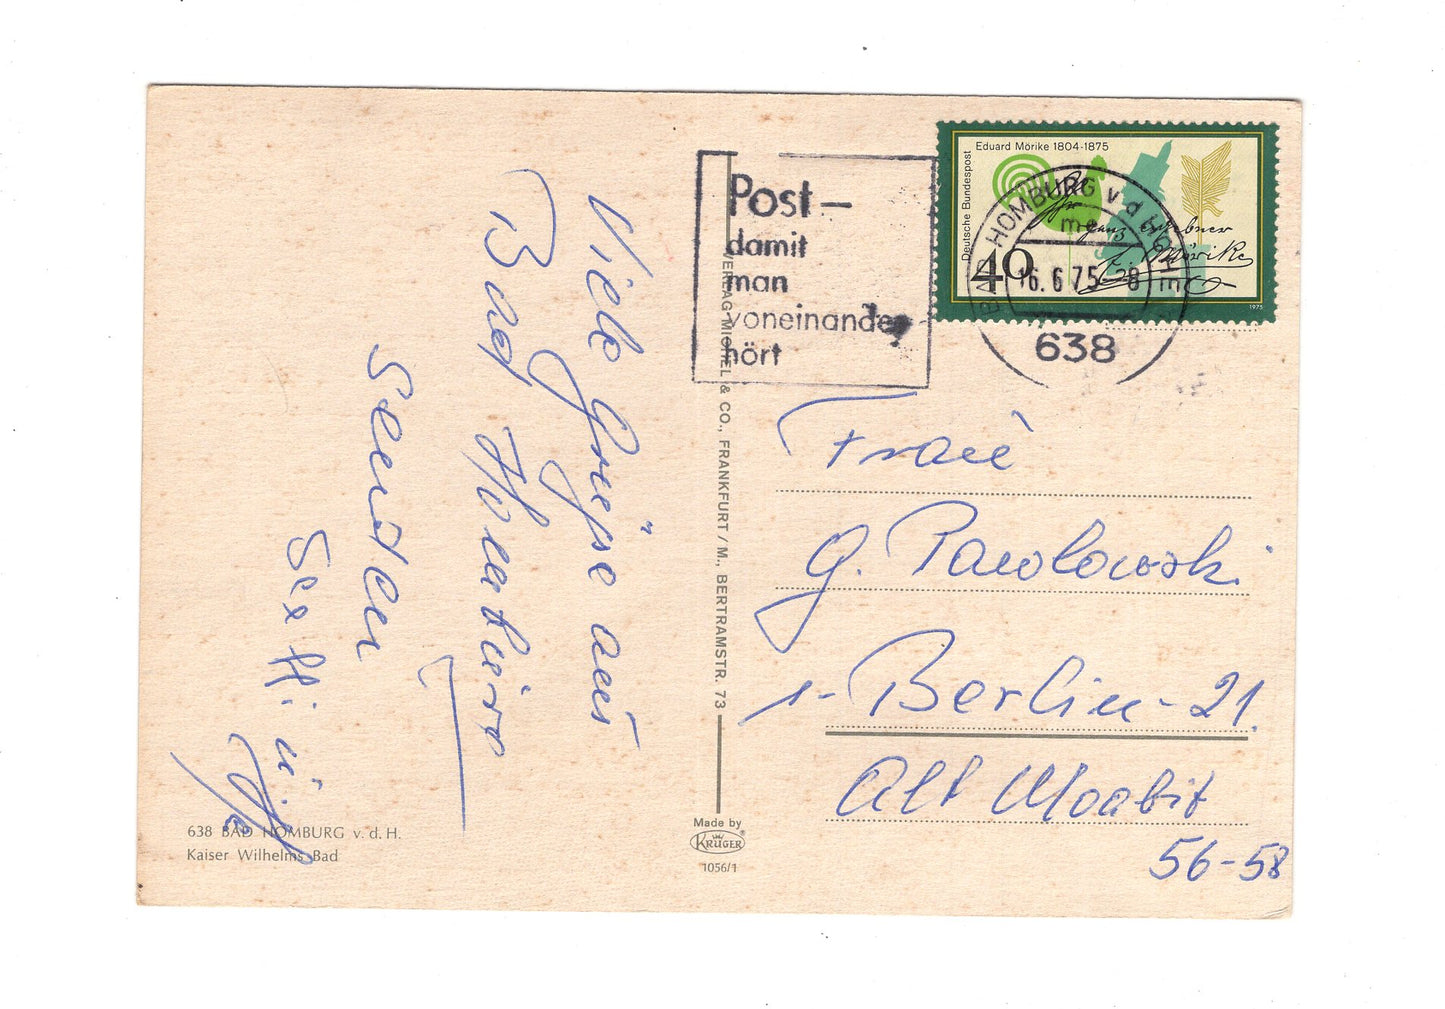 Viele Grüße aus
Bad Homburg
senden
Steffi u.
638 BAD HOMBURG v. d. H.
Kaiser Wilhelms Bad
VERLAG MICHEL & CO., FRANKFURT/M., BERTRAMSTR. 73
Made by
KRÜGER
1056/1
Post–
damit
man
voneinander
hört
Eduard Mörike 1804-1875
Deutsche Bundespost
40
1975
BAD HOMBURG v d HÖHE
mc
16.6.75-8
638
Frau
G. Pawlowski
1- Berlin-21.
Alt Moabit
56-58